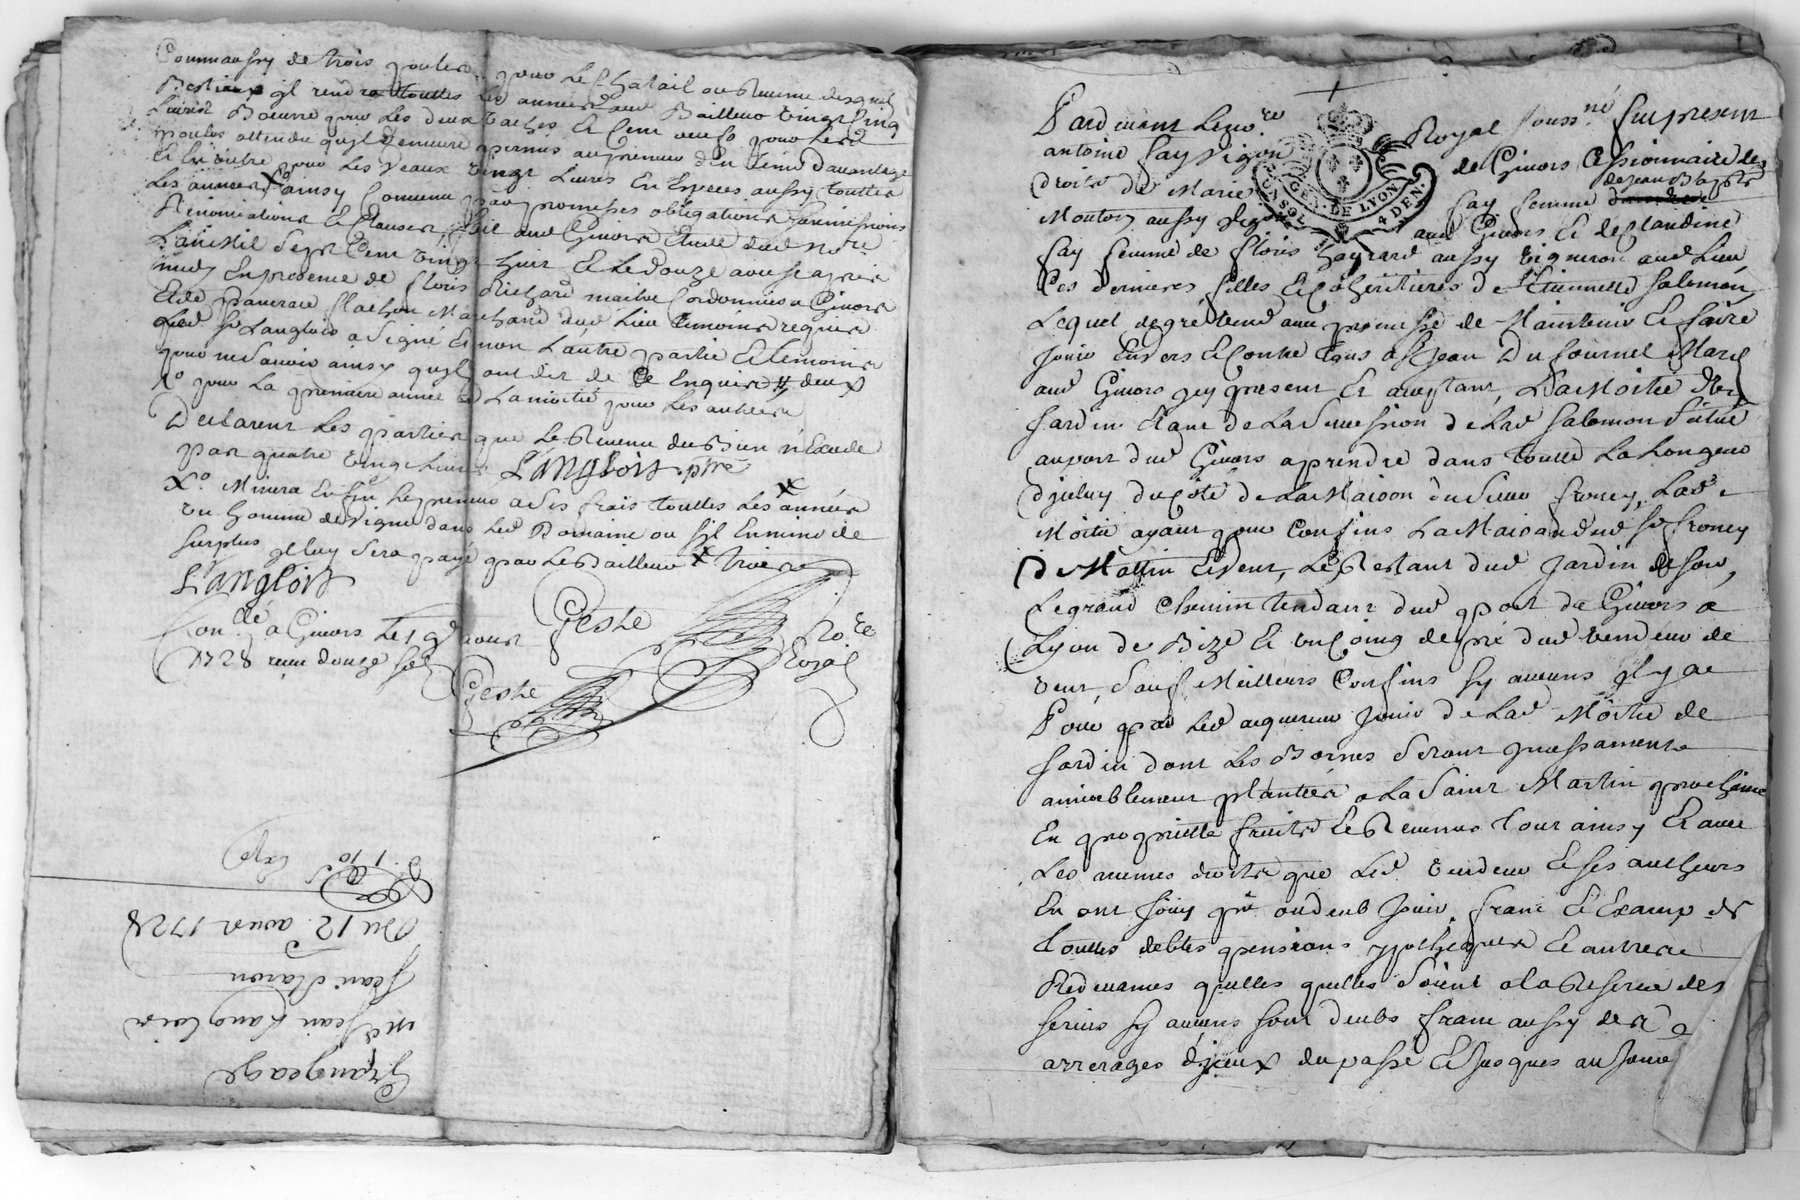 Comm aussy de trois poules pour le Chatail ou Revenu desquels
Bestiaux il rendra touttes les années aud Bailleur vingt cinq
Livres Beurre pour les deux vaches et Cent oeufs pour lesd
poules attendu quil demeure permis au preneur d'en tenir davantage
et en outre pour les veaux vingt Livres En Especes aussy touttes
Les années ainsy Convenu par promesses obligations soumissions
Renonciations et clauses, fait aud Givors Etude dud No.re
L'an Mil Sept Cent vingt huit et le douze aoust apres
midy En presence de floris Richard maitre Cordonnier a Givors
et de pancrace flachon Marchand dud Lieu temoins requis
Led Sr Langlois a Signé et non Lautre partie et temoins
pour ne Savoir ainsy quils ont dit de Ce Enquis deux
Xo pour La premiere année et La moitie pour Les autres
Declarent Les parties que le Revenu du Bien n'Exede
pas quatre vingt Livres Langlois ptre
Xo Minera Enfin le preneur a Ses frais touttes Les années
un homme de vigne dans Led Domaine ou Sil En mine de
surplus il luy Sera payé par Led Bailleur X trois
Langlois
Geste No.re Royal
Con.llé a Givors Le 19e aoust
1728 receu douze sols
Geste
Grangeage
mre Jean Langlois
Jean
Du 12 aoust 1728
Exp
Pardevant Le no.re Royal souss.né fut present
antoine fay vigneron de Givors Cessionnaire des
droits de Marie fay femme de Jean Baptiste
Mouton aussy vigneron aud Givors et de Claudine
fay femme de floris aussy vigneron aud Lieu
Ces dernieres filles et Coheritieres d'Etiennette Salomon
Lequel de gré vend avec promesse de Maintenir et faire
Jouir Envers et Contre tous a Sr Jean Dufournel March
aud Givors icy present et aceptant, La Moitié d'un
Jardin Etant de La Succession de Lad Salomon Situé
au port dud Givors a prendre dans toutte La Longeur
d'iceluy du Coté de La Maison du Sieur froney, Lad
Moitié ayant pour Confins La Maison dud Sr froney
de Matin et vent, Le Restant dud Jardin de Soir,
Le grand Chemin tendant dud port de Givors a
Lyon de Bize et un Coing de pré dud vendeur de
vent, Sauf Meilleurs Confins Sy aucuns il y a
Pour par Led acquereur Jouir de Lad Moitié de
Jardin dont Les Bornes Seront incessament
amiablement plantées a La Saint Martin prochaine
En proprieté fruits et Revenus tout ainsy et avec
Les memes droits que Led vendeur et ses autheurs
En ont Jouy peu ou deub Jouir, franc et Exampt de
touttes debtes pensions ypotheques et autres
Redevances quelles quelles Soient a La Reserve des
servis sy aucuns sont deubs franc aussy des
arrerages d'iceux du passé et Jusques au Jour
GEN. DE LYON 4 DEN.